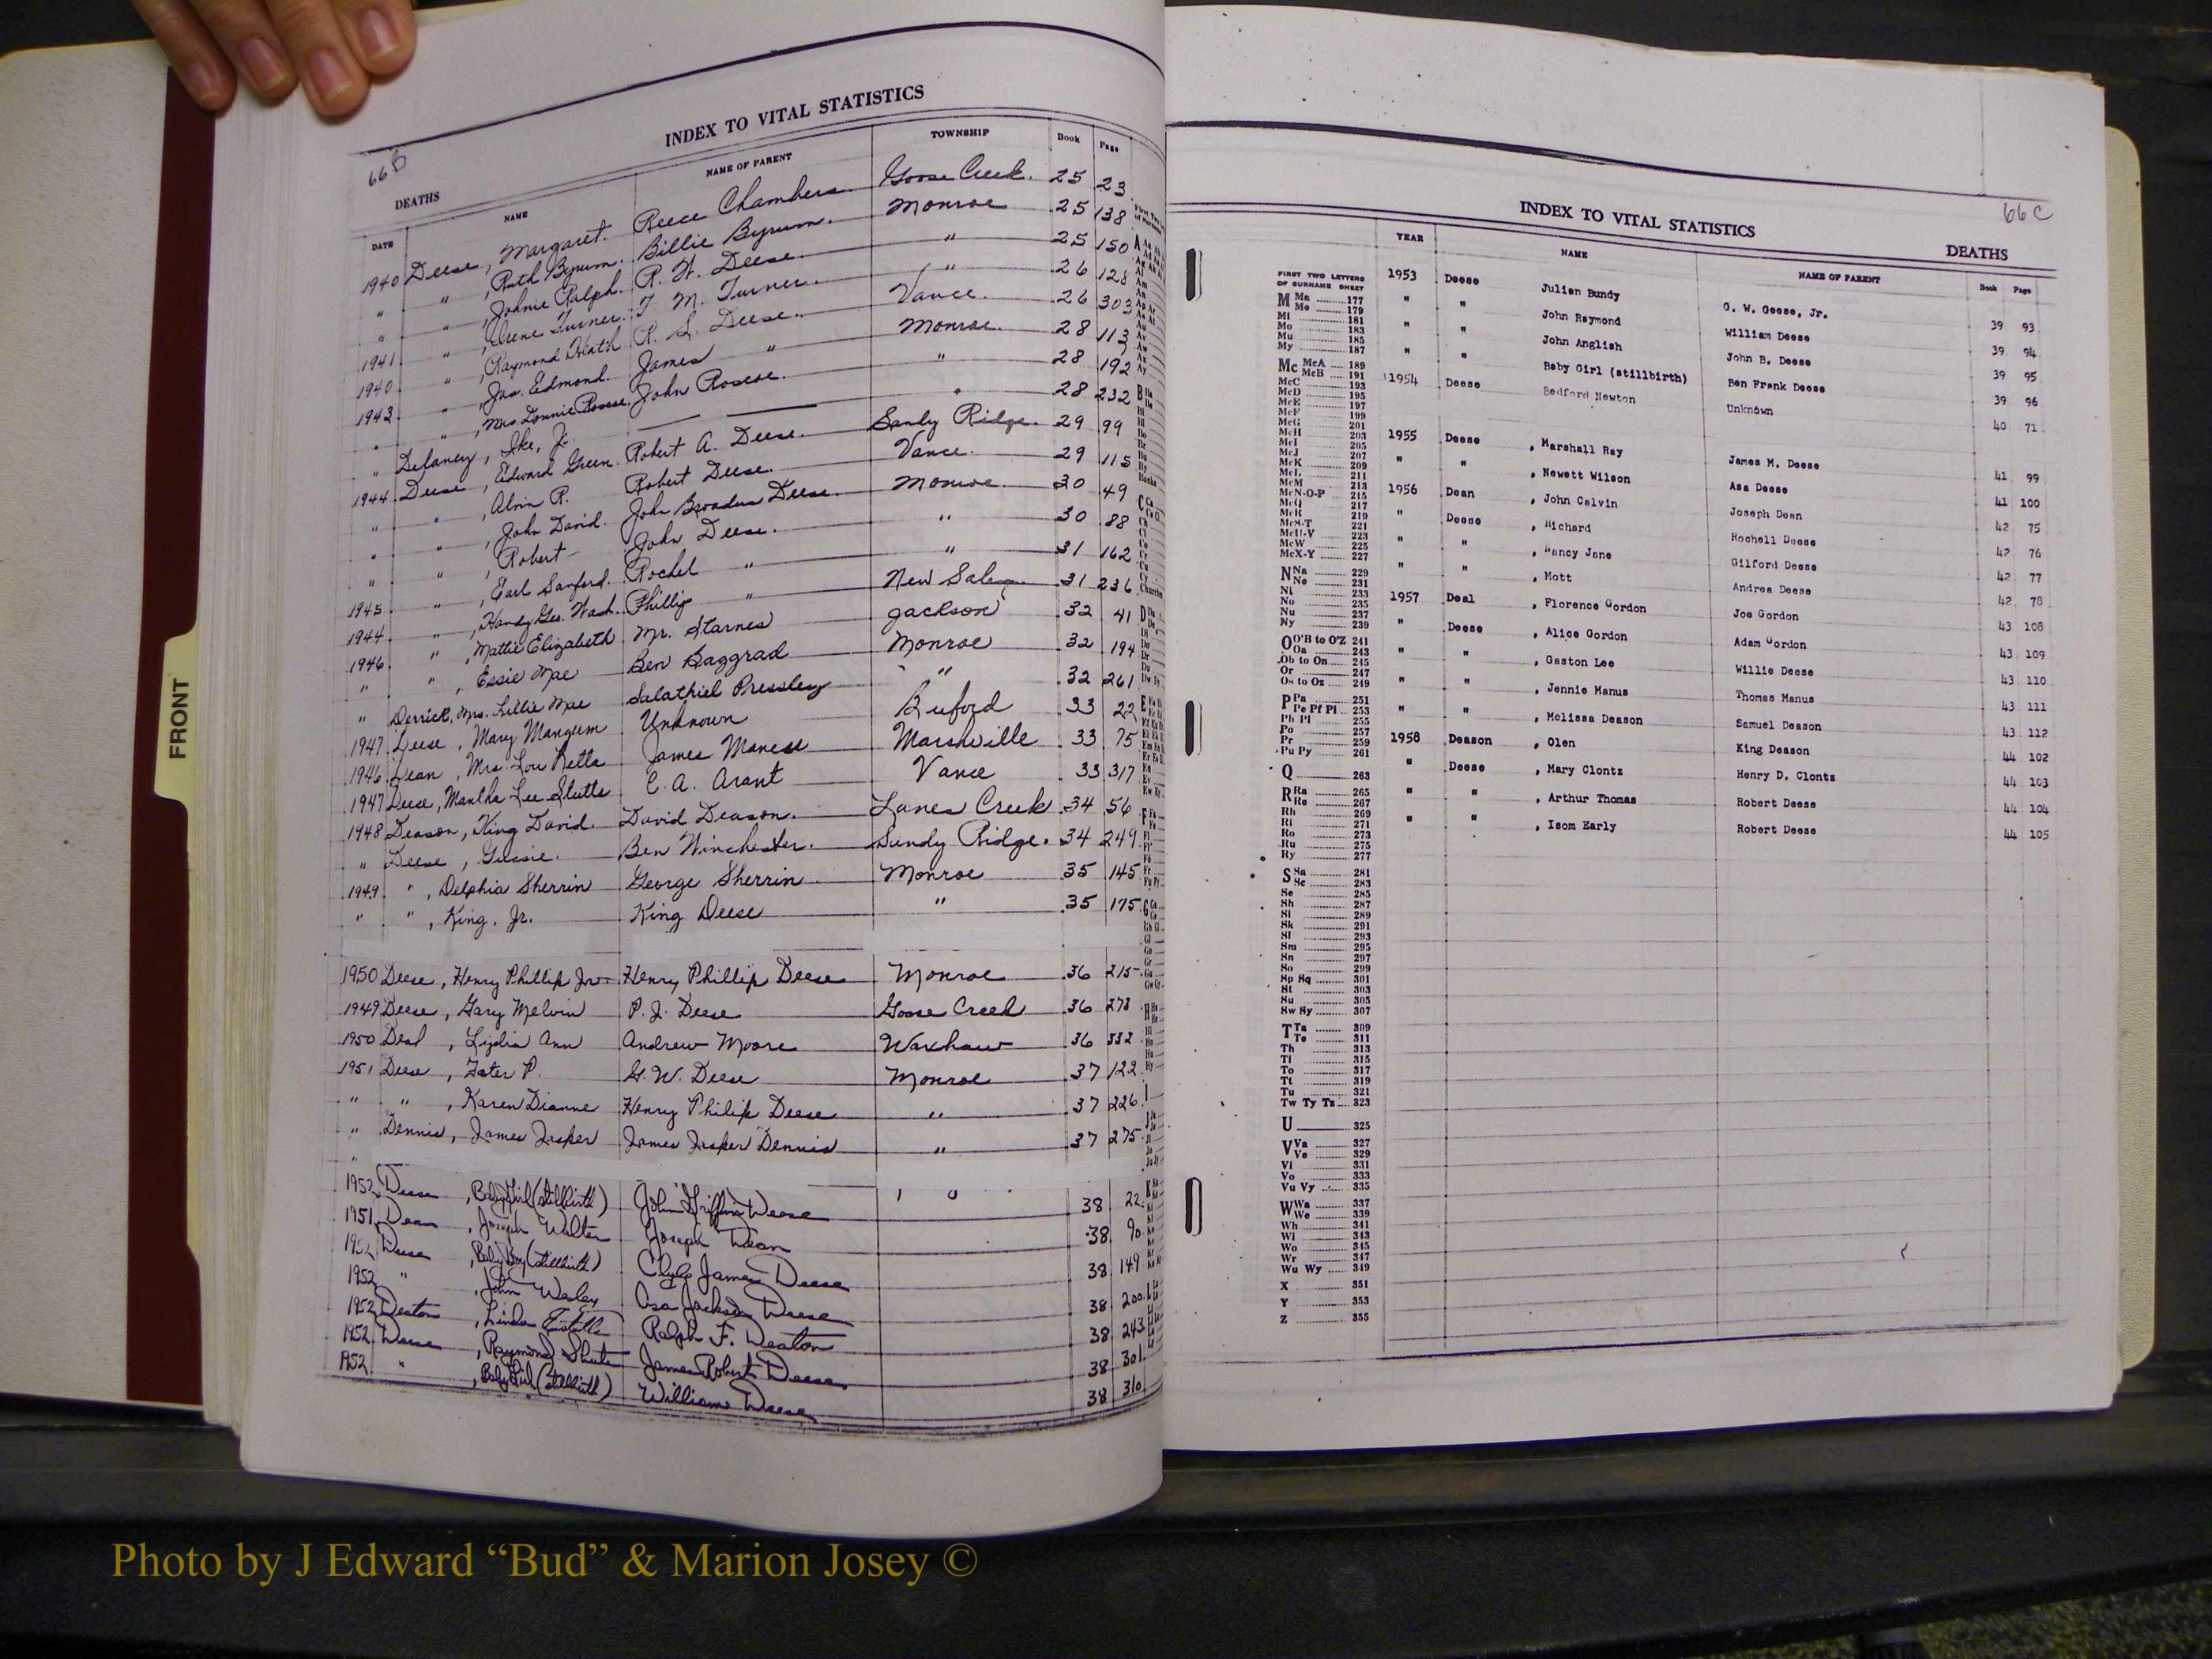 FRONT
66B
INDEX TO VITAL STATISTICS
DEATHS
DATE NAME NAME OF PARENT TOWNSHIP Book Page
1940 Deese, Margaret. Reece Chambers. Goose Creek. 25 23
" " , Ruth Byrum. Billie Byrum. Monroe 25 138
" " , Johnie Ralph. R. W. Deese. " 25 150
1941 " , Irene Turner. T. M. Turner. " 26 128
1940 " , Raymond Heath R. L. Deese. Vance. 26 303
1943 " , Jas. Edmond. James " Monroe. 28 113
" " , Mrs. Lonnie Roscoe. John Roscoe. " 28 192
" Delaney, Ike, Jr. " 28 232
1944 Deese, Edward Green. Robert A. Deese. Sandy Ridge. 29 99
" " , Alvin R. Robert Deese. Vance. 29 115
" " , John David. John Broadus Deese. Monroe. 30 49
" " , Robert John Deese. " 30 88
1945 " , Earl Sanford. Rochel " " 31 162
1944 " , Handy Geo. Wash. Phillip " New Salem 31 236
1946 " , Mattie Elizabeth Mr. Starnes Jackson 32 41
" " , Essie Mae Ben Baggrad Monroe 32 194
" Derrick, Mrs. Lillie Mae Salathiel Pressley " 32 261
1947 Deese, Mary Mangum Unknown Buford 33 22
1946 Dean, Mrs Lou Retta James Maness Marshville 33 75
1947 Deese, Martha Lee Stutts E. A. Arant Vance 33 317
1948 Deason, King David. David Deason. Lanes Creek 34 56
" Deese, Gussie. Ben Winchester. Sandy Ridge. 34 249
1949 " , Delphia Sherrin George Sherrin Monroe 35 145
" " , King. Jr. King Deese " 35 175
1950 Deese, Henry Phillip Jr. Henry Phillip Deese Monroe 36 215
1949 Deese, Gary Melvin P. J. Deese Goose Creek 36 273
1950 Deal, Lizdia Ann Andrew Moore Waxhaw 36 332
1951 Deese, Foster P. G. W. Deese Monroe 37 122
" " , Karen Dianne Henry Philip Deese " 37 226
" Dennis, James Jasper James Jasper Dennis " 37 275
"
1952 Deese, Baby Girl (stillbirth) John Griffin Deese " 38 22
1951 Dean, Joseph Walter Joseph Dean 38 90
Deese, Baby Boy (stillbirth) Clyde James Deese 38 149
1952 " , John Wesley Asa Jackson Deese 38 200
1952 Deaton, Linda Estelle Ralph F. Deaton 38 243
1952 Deese, Raymond Shute James Robert Deese 38 301
1952 " , Baby Girl (stillbirth) William Deese 38 310
66C
INDEX TO VITAL STATISTICS
DEATHS
YEAR NAME NAME OF PARENT Book Page
1953 Deese Julian Bundy G. W. Geese, Jr. 39 93
" " John Raymond William Deese 39 94
" " John Anglish John B. Deese 39 95
" " Baby Girl (stillbirth) Ben Frank Deese 39 96
1954 Deese Bedford Newton Unknown 40 71
1955 Deese , Marshall Ray James M. Deese 41 99
" " , Newett Wilson Asa Deese 41 100
1956 Dean , John Calvin Joseph Dean 42 75
" Deese , Richard Rochell Deese 42 76
" " , Nancy Jane Gilford Deese 42 77
" " , Mott Andrea Deese 42 78
1957 Deal , Florence Gordon Joe Gordon 43 108
" Deese , Alice Gordon Adam Gordon 43 109
" " , Gaston Lee Willie Deese 43 110
" " , Jennie Manus Thomas Manus 43 111
" " , Melissa Deason Samuel Deason 43 112
1958 Deason , Olen King Deason 44 102
" Deese , Mary Clontz Henry D. Clontz 44 103
" " , Arthur Thomas Robert Deese 44 104
" " , Isom Early Robert Deese 44 105
FIRST TWO LETTERS
OF SURNAME SHEET
M Ma 177
Me 179
Mi 181
Mo 183
Mu 185
My 187
Mc McA 189
McB 191
McC 193
McD 195
McE 197
McF 199
McG 201
McH 203
McI 205
McJ 207
McK 209
McL 211
McM 213
McN-O-P 215
McQ 217
McR 219
McS-T 221
McU-V 223
McW 225
McX-Y 227
N Na 229
Ne 231
Ni 233
No 235
Nu 237
Ny 239
O O'B to O'Z 241
Oa 243
Ob to On 245
Or 247
Os to Oz 249
P Pa 251
Pe Pf Pi 253
Ph Pl 255
Po 257
Pr 259
Pu Py 261
Q 263
R Ra 265
Re 267
Rh 269
Ri 271
Ro 273
Ru 275
Ry 277
S Sa 281
Sc 283
Se 285
Sh 287
Si 289
Sk 291
Sl 293
Sm 295
Sn 297
So 299
Sp Sq 301
St 303
Su 305
Sw Sy 307
T Ta 309
Te 311
Th 313
Ti 315
To 317
Tt 319
Tu 321
Tw Ty Tz 323
U 325
V Va 327
Ve 329
Vi 331
Vo 333
Vu Vy 335
W Wa 337
We 339
Wh 341
Wi 343
Wo 345
Wr 347
Wu Wy 349
X 351
Y 353
Z 355
Photo by J Edward “Bud” & Marion Josey ©